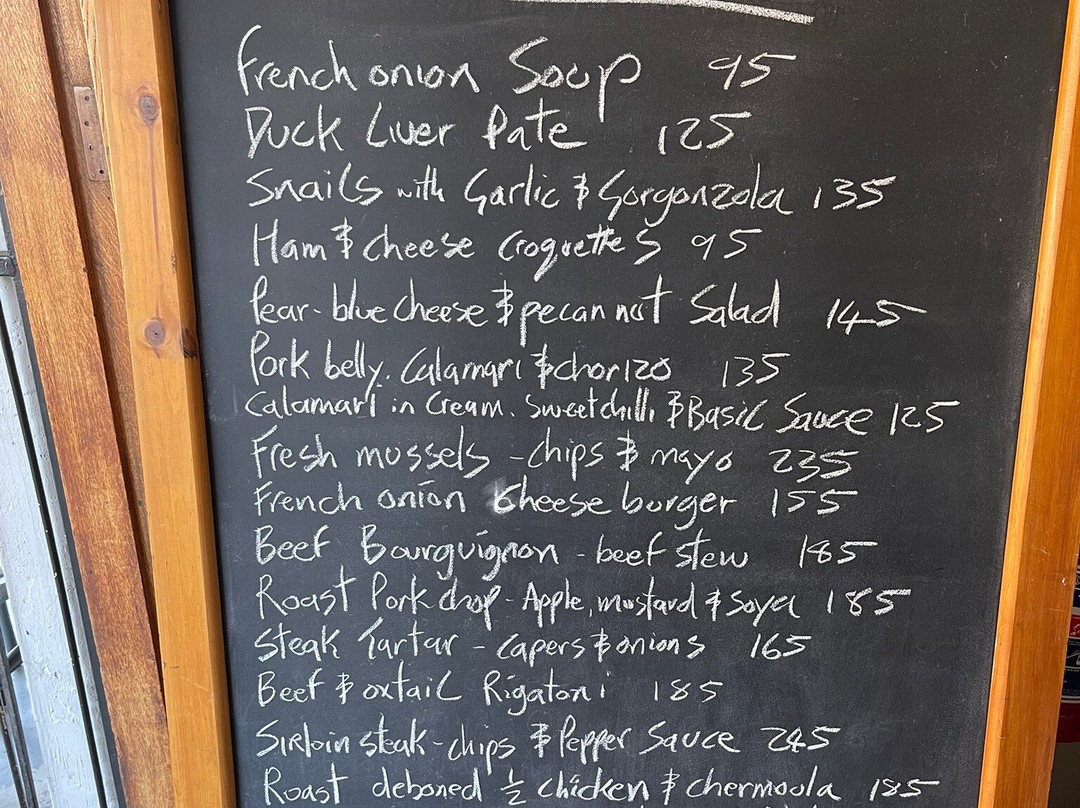 French onion Soup 95
Duck Liver Pate 125
Snails with Garlic & Gorgonzola 135
Ham & cheese croquettes 95
Pear-blue cheese & pecan nut Salad 145
Pork belly. Calamari & chorizo 135
Calamari in Cream. Sweet chilli & Basic Sauce 125
Fresh mussels - chips & mayo 235
French onion Cheese burger 155
Beef Bourguignon - beef stew 185
Roast Pork chop - Apple, mustard & Soya 185
Steak Tartar - capers & onions 165
Beef & oxtail Rigatoni 185
Sirloin steak - chips & Pepper Sauce 245
Roast deboned ½ chicken & chermoola 185